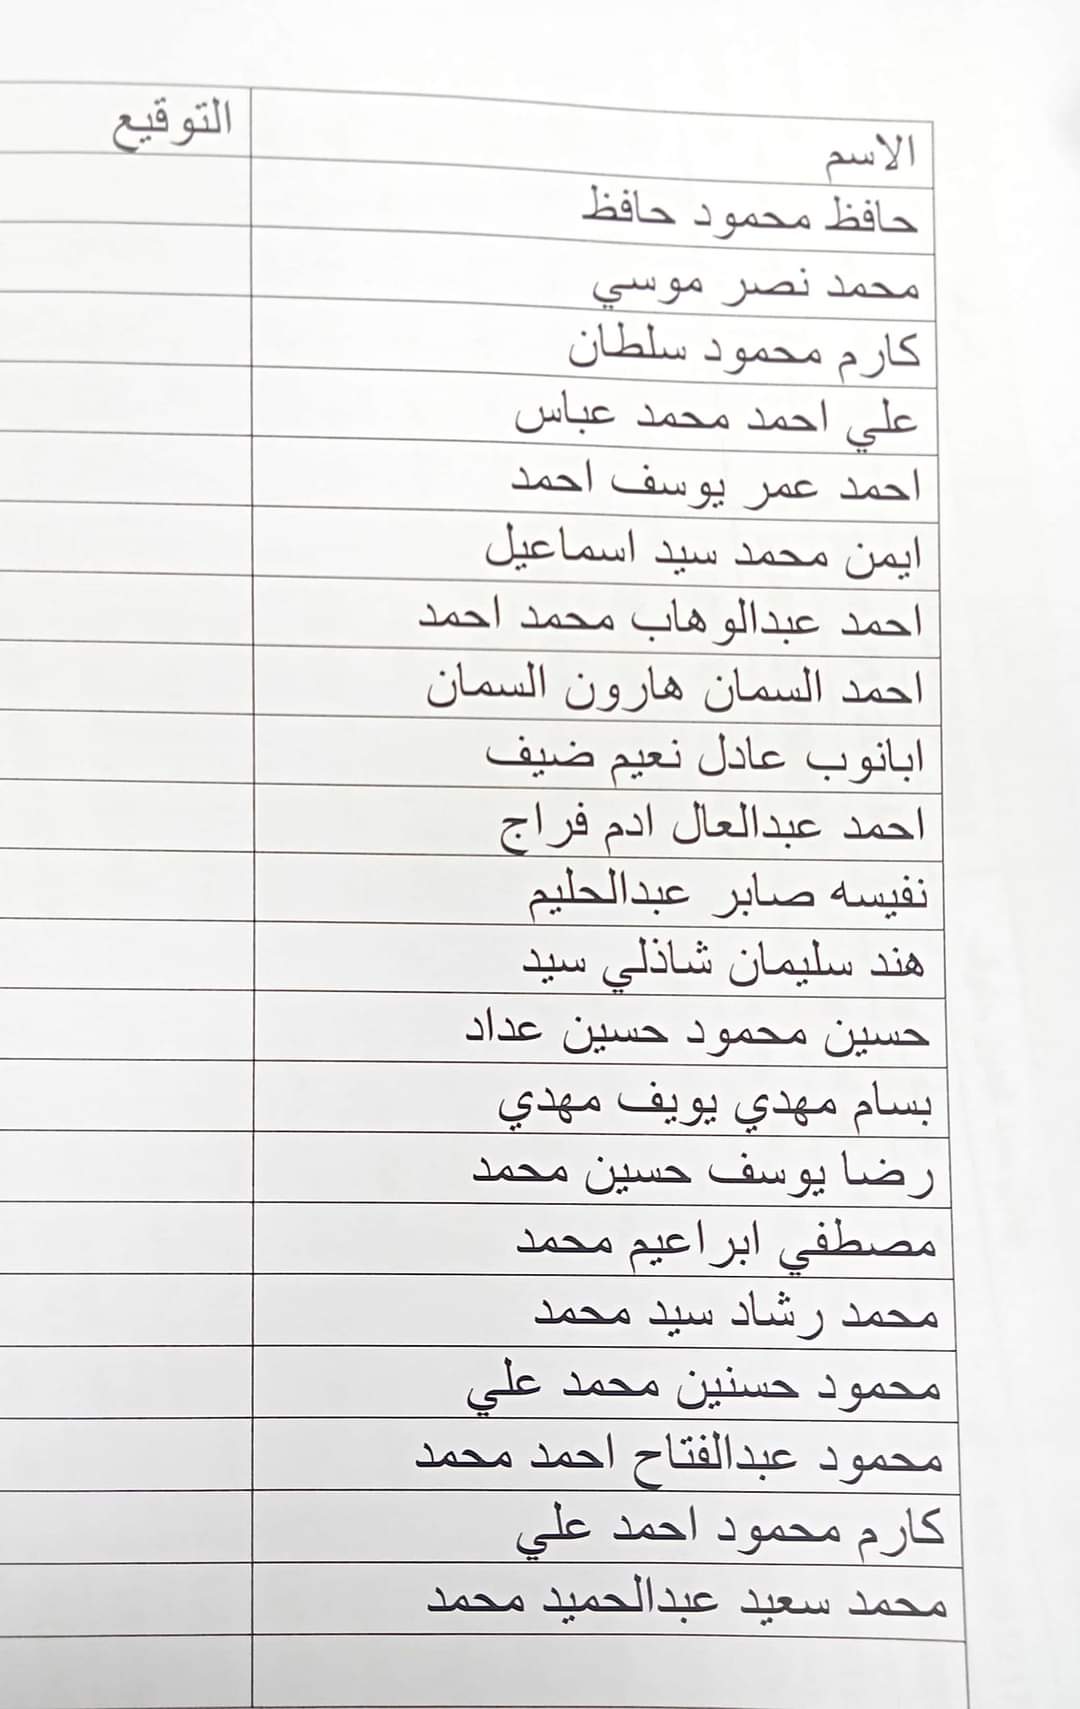 الاسم التوقيع
حافظ محمود حافظ
محمد نصر موسي
كارم محمود سلطان
علي احمد محمد عباس
احمد عمر يوسف احمد
ايمن محمد سيد اسماعيل
احمد عبدالوهاب محمد احمد
احمد السمان هارون السمان
ابانوب عادل نعيم ضيف
احمد عبدالعال ادم فراج
نفيسه صابر عبدالحليم
هند سليمان شاذلي سيد
حسين محمود حسين عداد
بسام مهدي يويف مهدي
رضا يوسف حسين محمد
مصطفي ابراعيم محمد
محمد رشاد سيد محمد
محمود حسنين محمد علي
محمود عبدالفتاح احمد محمد
كارم محمود احمد علي
محمد سعيد عبدالحميد محمد